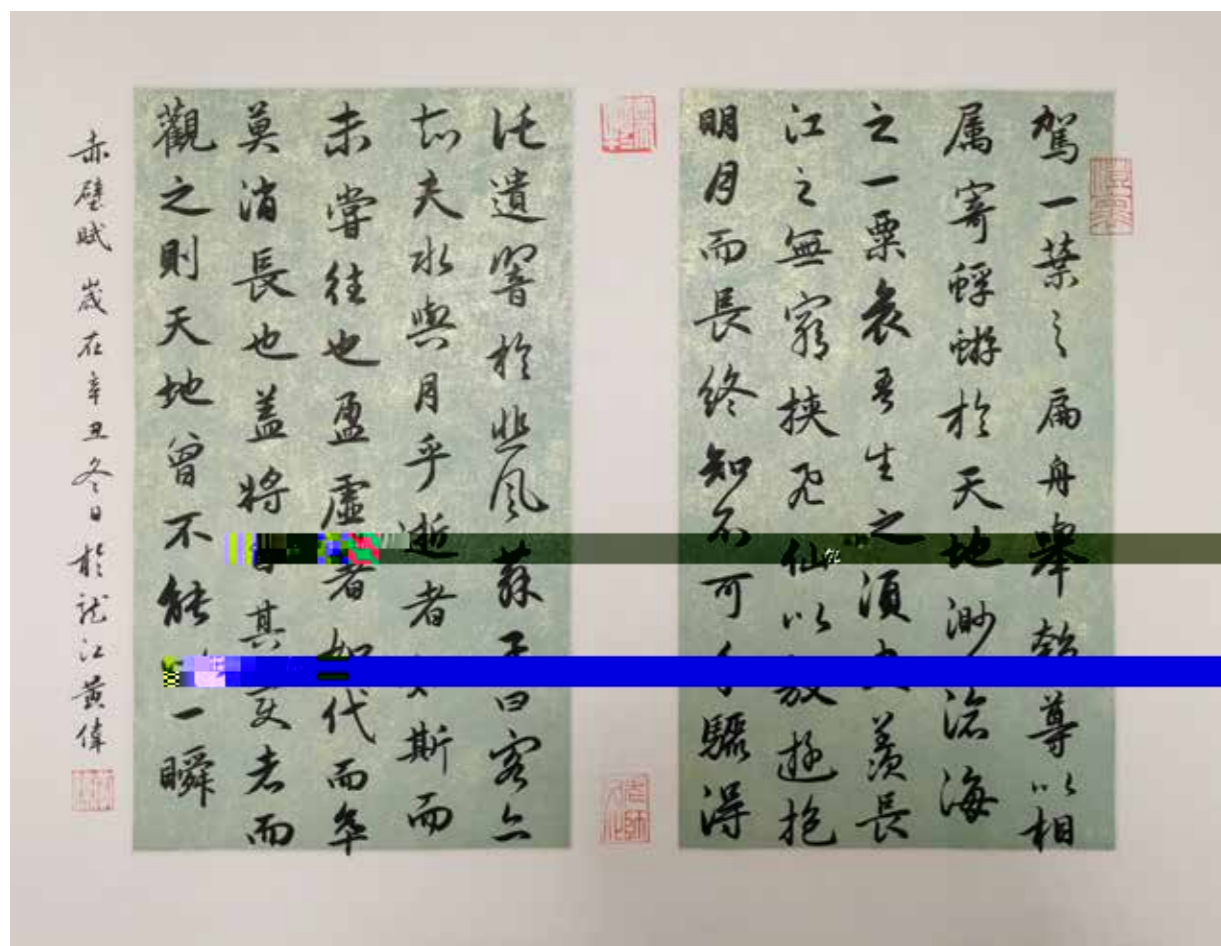 駕一葉之扁舟舉尊以相
属寄蜉蝣於天地渺滄海
之一粟哀吾生之須羨長
江之無窮挾飛仙以遊抱
明月而長終知不可驟得
託遺響於悲風蘇曰客亦
知夫水與月乎逝者斯而
未嘗往也盈虛者如代而卒
莫消長也盖將其变者而
觀之則天地曾不能一瞬
赤壁賦 歲在辛丑冬日於龍江黃偉